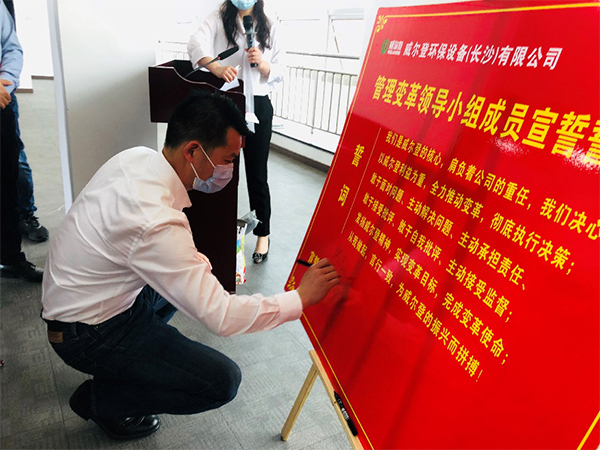 威尔登环保设备(长沙)有限公司
管理变革领导小组成员宣誓
誓词
我们是威尔登的核心，肩负着公司的重任，我们决心
以威尔登利益为重，全力推动变革，彻底执行决策；
敢于面对问题、主动解决问题、主动承担责任、
敢于接受批评、敢于自我批评、主动接受监督；
发扬威尔登精神，实现变革目标，完成变革使命；
从我做起，言行一致，为威尔登的振兴而拼搏！